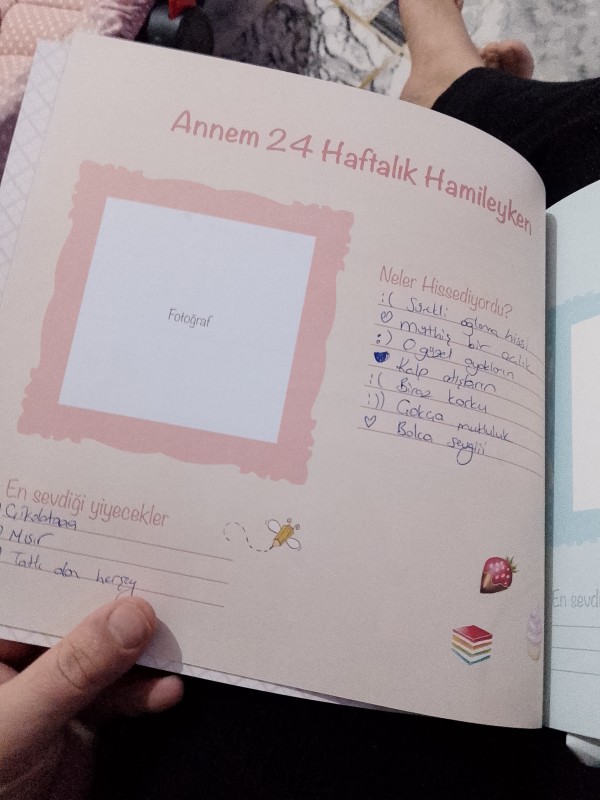 Annem 24 Haftalık Hamileyken
Fotoğraf
Neler Hissediyordu?
:( Sürekli ağlama hissi
♡ müthiş bir açlık
:) O güzel ayakların
♥ Kalp atışların
:( Biraz korku
:)) Çokça mutluluk
♡ Bolca sevgiii
En sevdiği yiyecekler
Çikolataaa
Mısır
Tatlı olan herşey
En sevdi